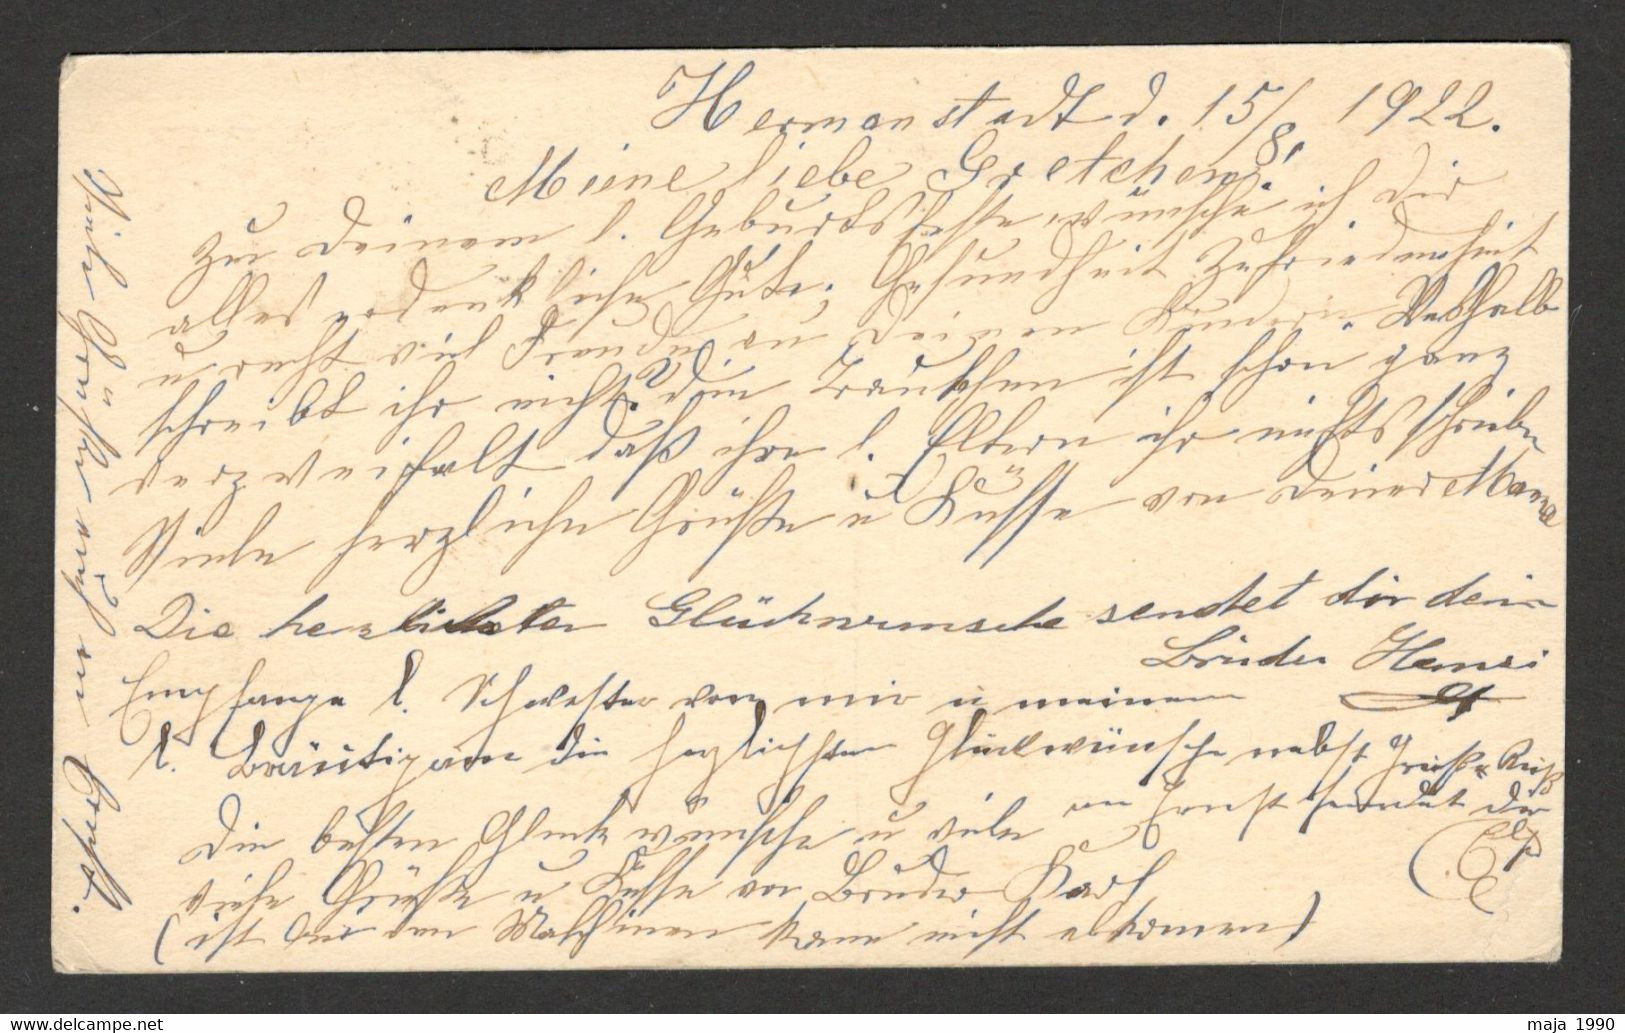 Hermanstadt d. 15/8. 1922.
Meine liebe Gretchen!
Zu Deinem l. Geburtsfeste wünsche ich Dir
alles erdenkliche Gute, Gesundheit Zufriedenheit
u recht viel Freude an Deinen Kindern. Weshalb
schreibt ihr nicht? Dein Trautchen ist schon ganz
verzweifelt daß ihre l. Eltern ihr nichts schreiben
Viele herzliche Grüße u Küsse von Deiner Mama
Die herzlichsten Glückwünsche sendet dir dein
Bruder Hansi
Empfange l. Schwester von mir u meinem
l. Bräutigam die herzlichsten Glückwünsche nebst Grüße u Kuß
Die besten Glückwünsche u viele
an Ernst sendet dir
viele Grüße u Küsse von Bruder Karl
(ist bei den Maschinen kann nicht abkommen)
Viele Grüße an